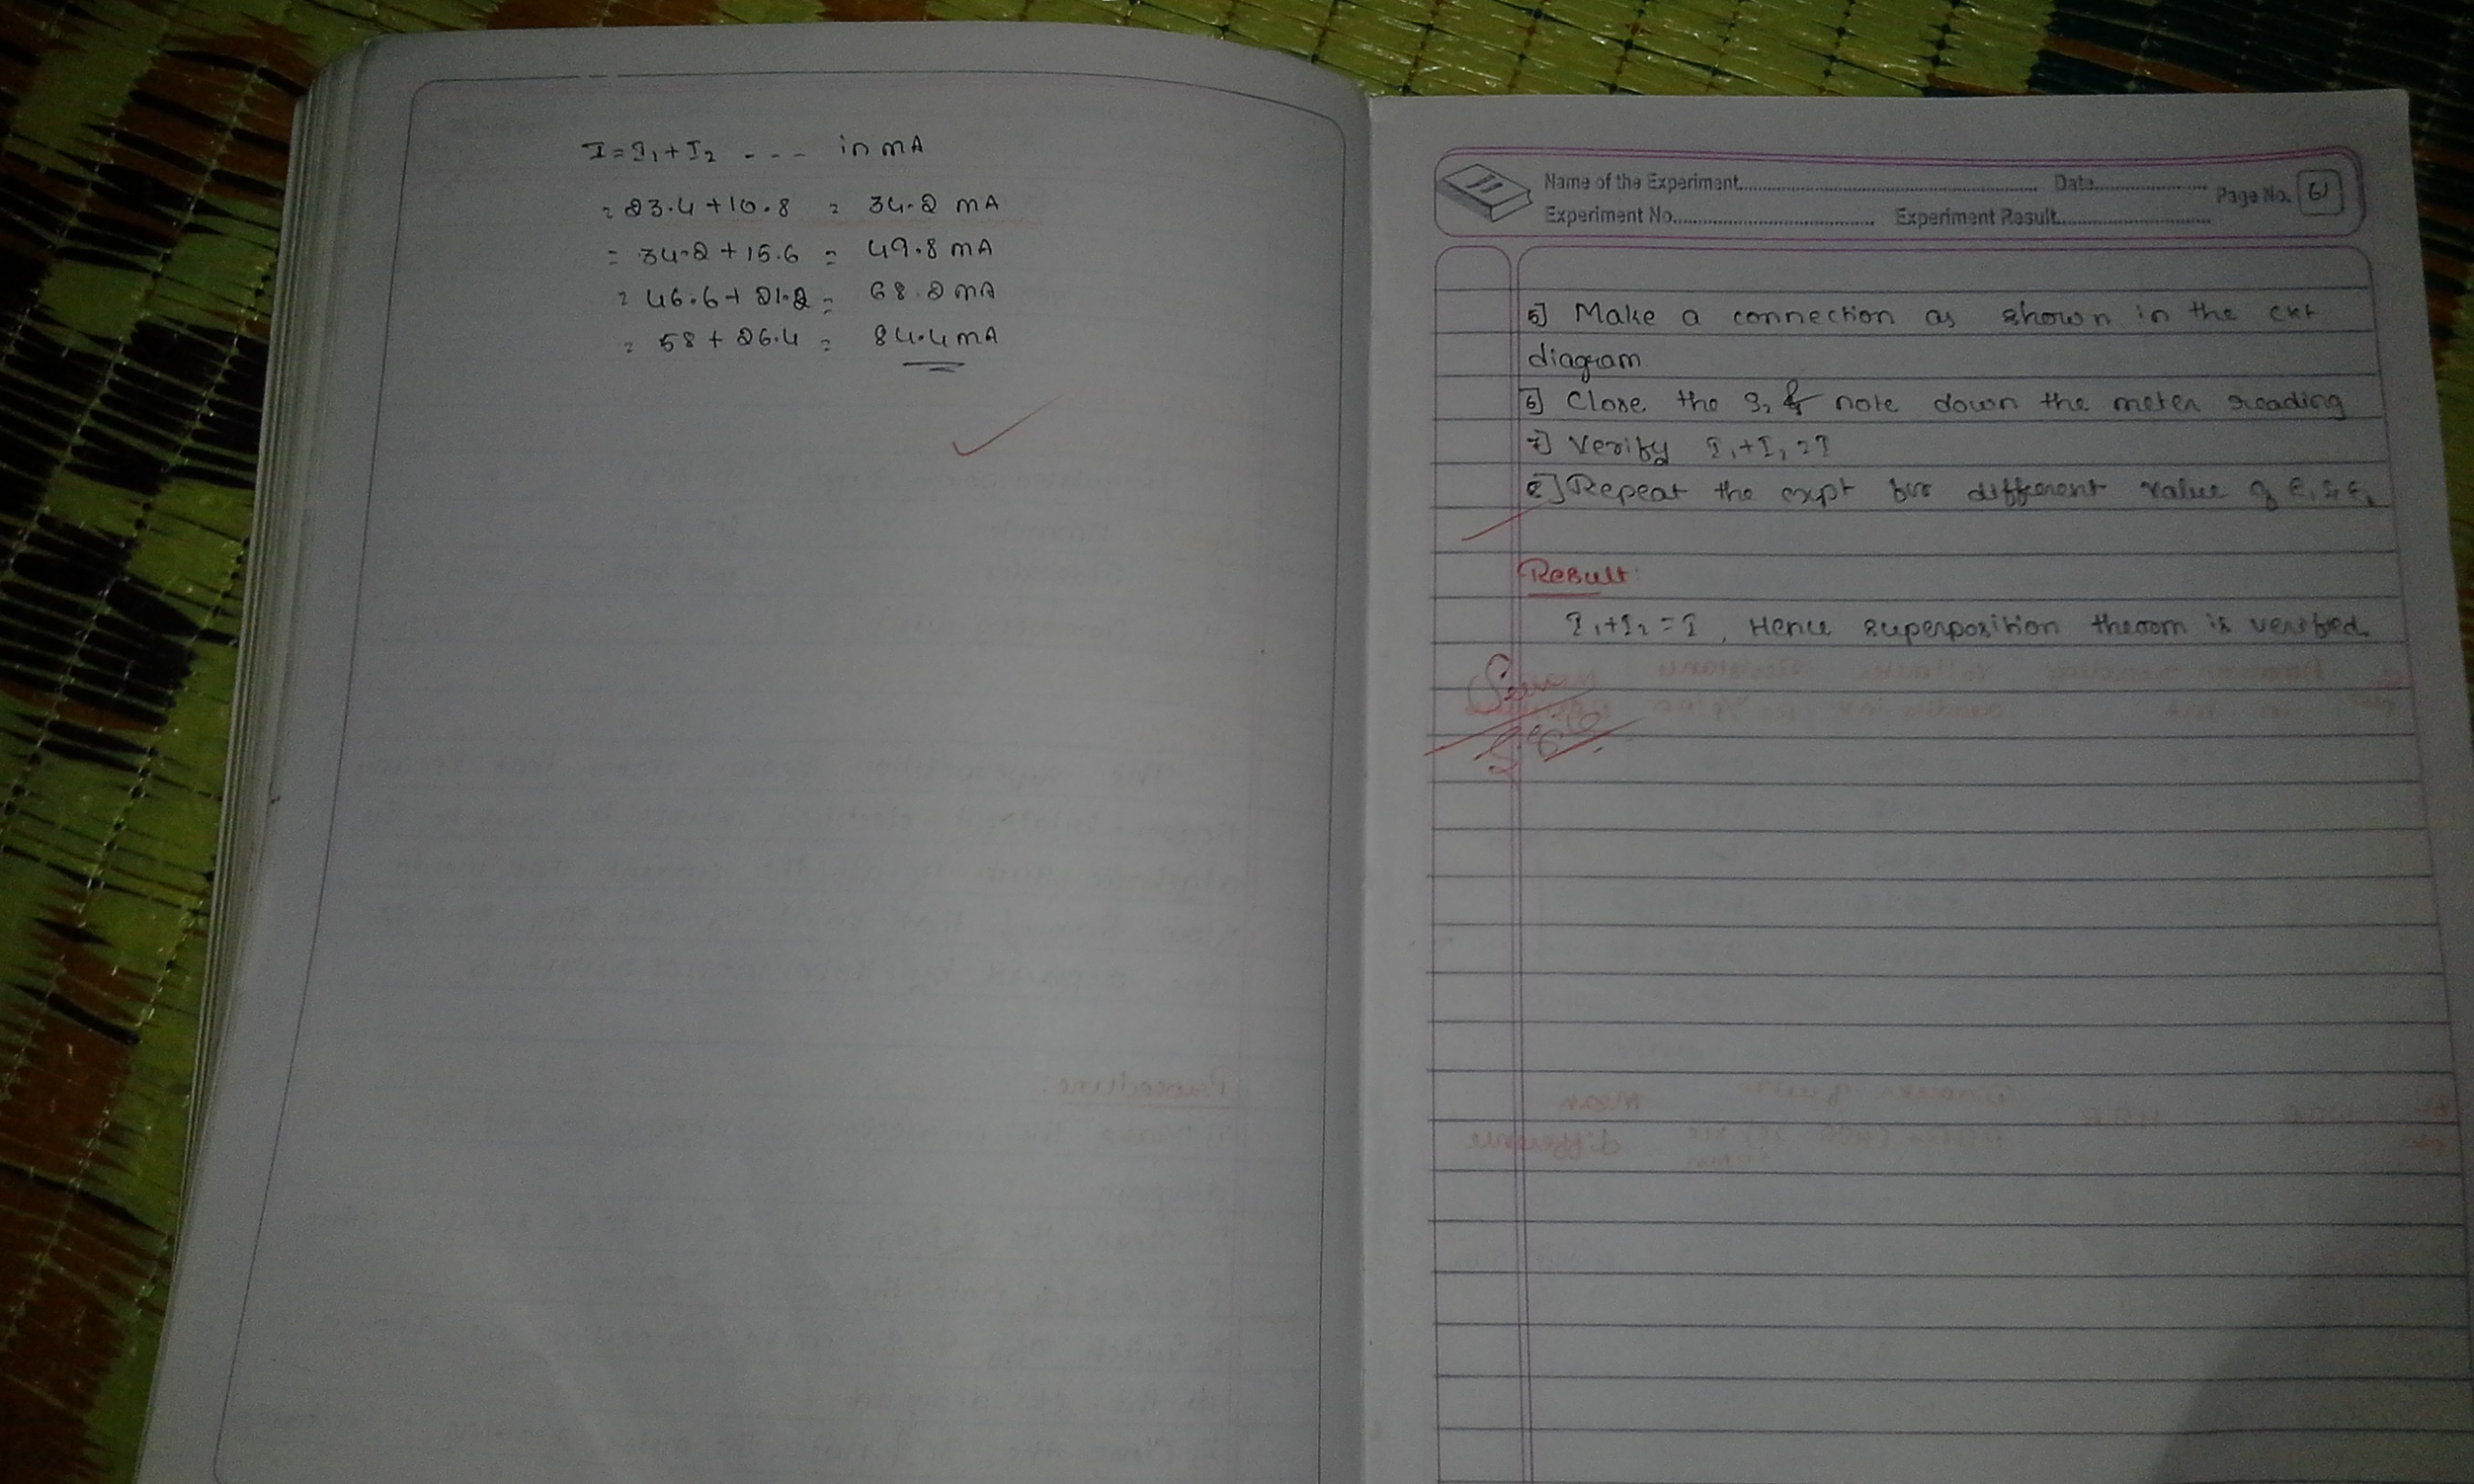 I = I₁ + I₂ - - - in mA
= 23.4 + 10.8 = 34.2 mA
= 34.2 + 15.6 = 49.8 mA
= 46.6 + 21.2 = 68.2 mA
= 58 + 26.4 = 84.4 mA
Name of the Experiment Date Page No. 61
Experiment No. Experiment Result
5] Make a connection as shown in the ckt
diagram
6] Close the S₂ & note down the meter reading
7] Verify I₁ + I₂ = I
8] Repeat the expt for different value of E₁ & E₂
Result:
I₁ + I₂ = I, Hence superposition theorm is verified.